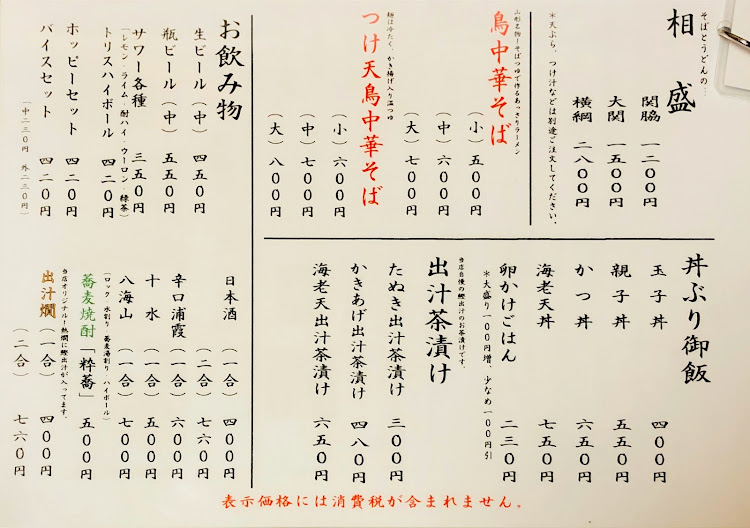 そばとうどんの…
相盛
関脇 一二〇〇円
大関 一五〇〇円
横綱 二八〇〇円
＊天ぷら、つけ汁などは別途ご注文してください。
鳥中華そば
山形名物！そばつゆで作るあっさりラーメン
（小）五〇〇円
（中）六〇〇円
（大）七〇〇円
つけ天鳥中華そば
麺は冷たく、かき揚げ入り温つゆ
（小）六〇〇円
（中）七〇〇円
（大）八〇〇円
丼ぶり御飯
玉子丼 四〇〇円
親子丼 五五〇円
かつ丼 六五〇円
海老天丼 七五〇円
卵かけごはん 二三〇円
＊大盛り一〇〇円増、少なめ一〇〇円引
出汁茶漬け
当店自慢の鰹出汁のお茶漬けです。
たぬき出汁茶漬け 三〇〇円
かきあげ出汁茶漬け 四八〇円
海老天出汁茶漬け 六五〇円
お飲み物
生ビール（中） 四五〇円
瓶ビール（中） 五五〇円
サワー各種 三五〇円
（レモン・ライム・酎ハイ・ウーロン・緑茶）
トリスハイボール 四二〇円
ホッピーセット 四二〇円
バイスセット 四二〇円
（中二三〇円 外二三〇円）
日本酒（一合） 四〇〇円
（二合） 七六〇円
辛口浦霞（一合） 六〇〇円
十水（一合） 五〇〇円
八海山（一合） 七〇〇円
蕎麦焼酎「粋蕎」 五〇〇円
（ロック・水割り・蕎麦湯割り・ハイボール）
出汁燗（一合） 四〇〇円
当店オリジナル！熱燗に鰹出汁が入ってます。
（二合） 七六〇円
表示価格には消費税が含まれません。